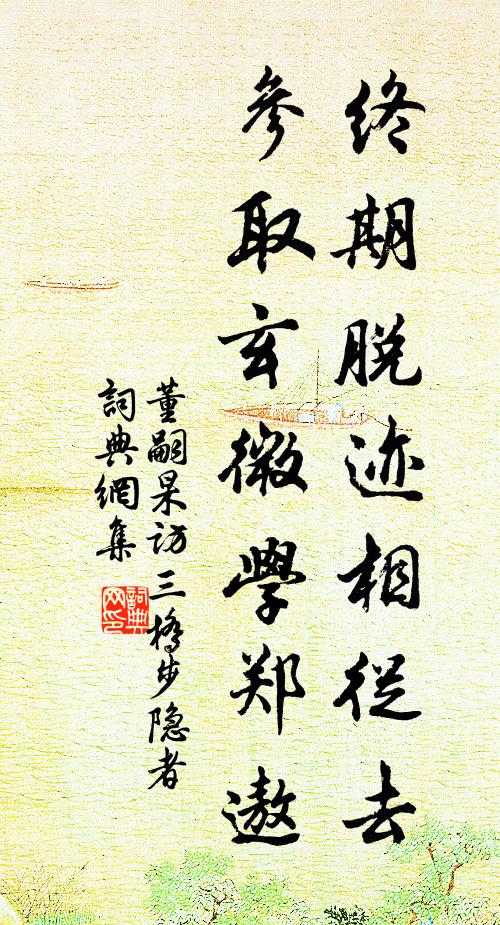 終期脱迹相從去
參取玄微學郑遨
董嗣杲访三橋步隐者
詞典網集
詞典网印